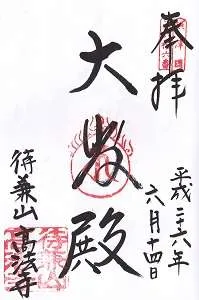 奉拝
平成二十六年
六月十四日
大悲殿
待兼山 高法寺